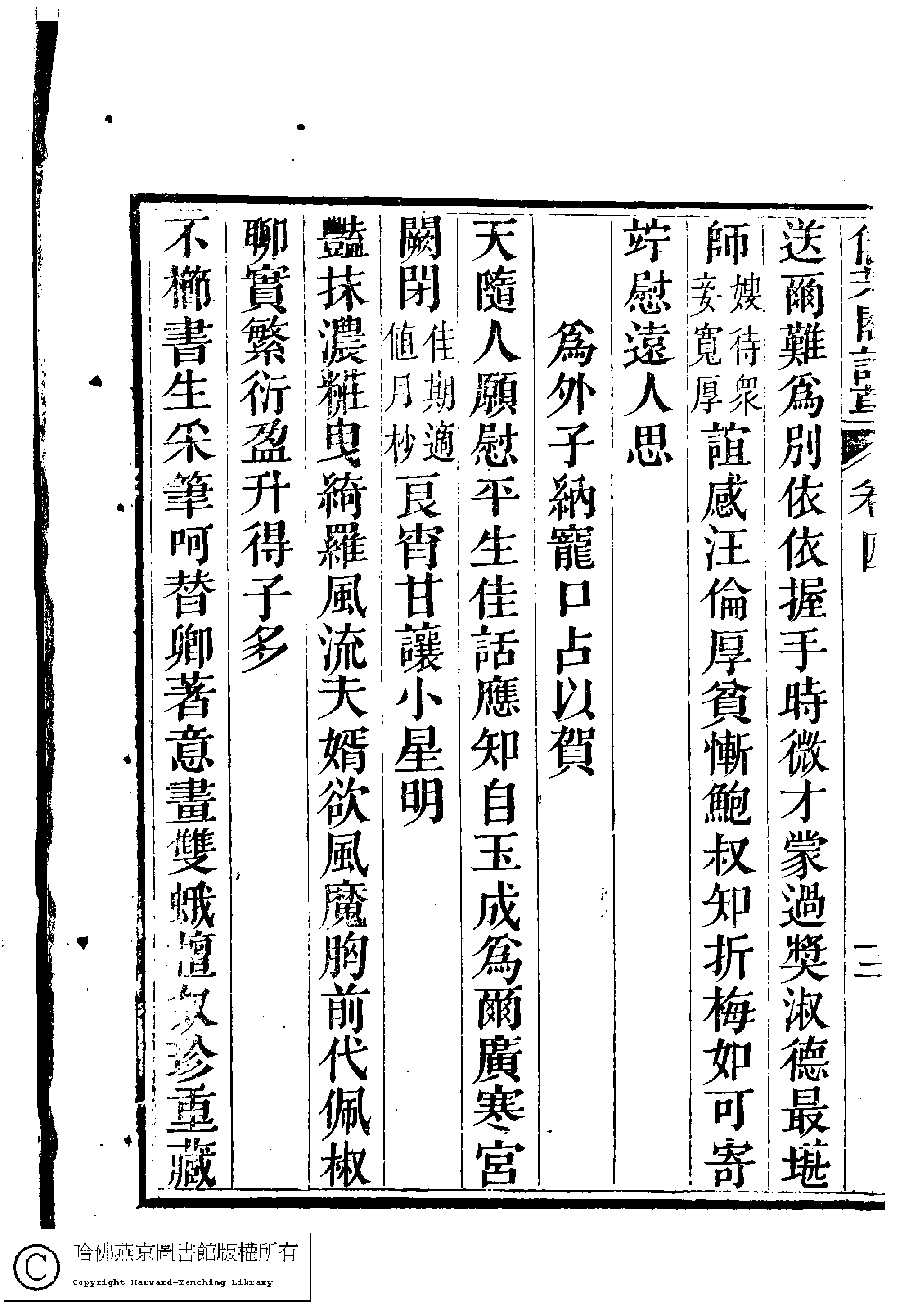 信芳閣詩草 卷四
送爾難爲別依依握手時微才蒙過獎淑德最堪
師嫂待衆妾寬厚誼感汪倫厚貧慚鮑叔知折梅如可寄
竚慰遠人思
爲外子納寵口占以賀
天隨人願慰平生佳話應知自玉成爲爾廣寒宮
闕閉佳期適值月杪良宵甘讓小星明
豔抹濃糚曳綺羅風流夫婿欲風魔胸前代佩椒
聊實繁衍盈升得子多
不櫛書生采筆呵替卿著意畫雙蛾檀奴珍重藏
哈佛燕京圖書館版權所有
Copyright Harvard-Yenching Library